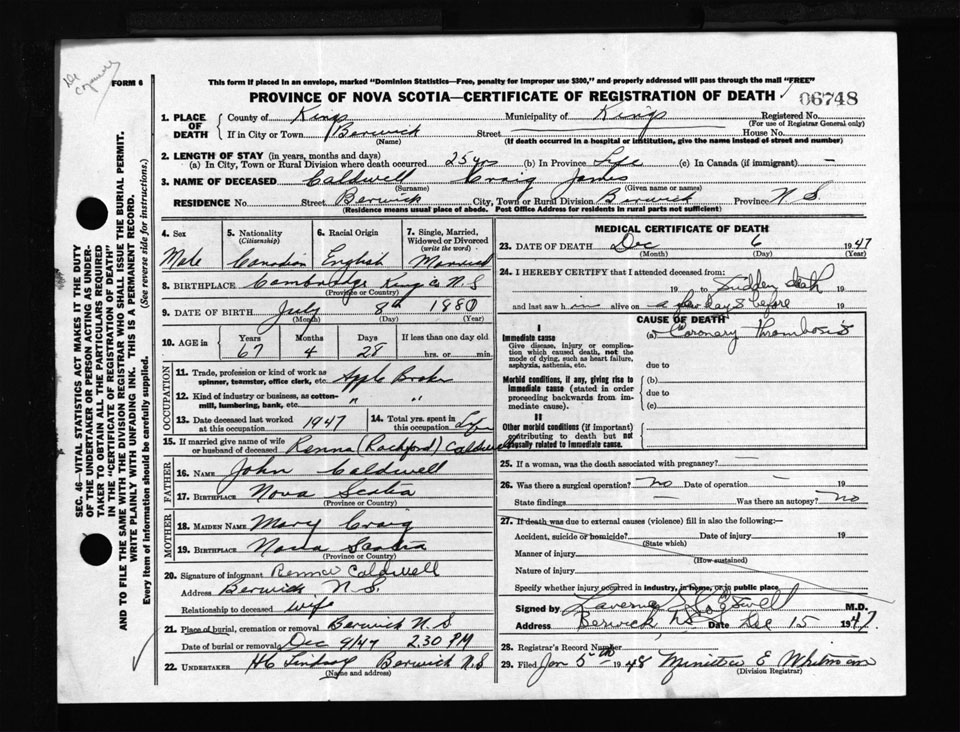 FORM 6
This form if placed in an envelope, marked "Dominion Statistics—Free, penalty for improper use $300," and properly addressed will pass through the mail "FREE"
PROVINCE OF NOVA SCOTIA—CERTIFICATE OF REGISTRATION OF DEATH
06748
1. PLACE OF DEATH
County of Kings Municipality of Kings Registered No.
(For use of Registrar General only)
If in City or Town Berwick Street House No.
(Name) (If death occurred in a hospital or institution, give the name instead of street and number)
2. LENGTH OF STAY (in years, months and days)
(a) In City, Town or Rural Division where death occurred 25 yrs (b) In Province Life (c) In Canada (if immigrant) —
3. NAME OF DECEASED Caldwell Craig James
(Surname) (Given name or names)
RESIDENCE No. Street Berwick City, Town or Rural Division Berwick Province N.S.
(Residence means usual place of abode. Post Office Address for residents in rural parts not sufficient)
4. Sex Male
5. Nationality (Citizenship) Canadian
6. Racial Origin English
7. Single, Married, Widowed or Divorced (write the word) Married
8. BIRTHPLACE Cambridge Kings Co N.S
(Province or Country)
9. DATE OF BIRTH July 8th 1880
(Month) (Day) (Year)
10. AGE in Years 67 Months 4 Days 28 If less than one day old hrs. or min.
OCCUPATION
11. Trade, profession or kind of work as spinner, teamster, office clerk, etc. Apple Broker
12. Kind of industry or business, as cotton-mill, lumbering, bank, etc. " "
13. Date deceased last worked at this occupation 1947
14. Total yrs. spent in this occupation Life
15. If married give name of wife or husband of deceased (Rockford) Caldwell
FATHER
16. NAME John Caldwell
17. BIRTHPLACE Nova Scotia
MOTHER
18. MAIDEN NAME Mary Craig
19. BIRTHPLACE Nova Scotia
(Province or Country)
20. Signature of informant Caldwell
Address Berwick N.S.
Relationship to deceased wife
21. Place of burial, cremation or removal Berwick N.S
Date of burial or removal Dec 9/47 2.30 PM
22. UNDERTAKER Lindsay Berwick N.S
(Name and address)
MEDICAL CERTIFICATE OF DEATH
23. DATE OF DEATH Dec 6 1947
(Month) (Day) (Year)
24. I HEREBY CERTIFY that I attended deceased from:
19 to Sudden death 19
and last saw him alive on a few days before 19
CAUSE OF DEATH
I
Immediate cause
Give disease, injury or complication which caused death, not the mode of dying, such as heart failure, asphyxia, asthenia, etc.
(a) Coronary Thrombosis
due to
Morbid conditions, if any, giving rise to immediate cause (stated in order proceeding backwards from immediate cause).
(b)
due to
(c)
II
Other morbid conditions (if important) contributing to death but not causally related to immediate cause.
25. If a woman, was the death associated with pregnancy? —
26. Was there a surgical operation? no Date of operation — 19
State findings — Was there an autopsy? no
27. If death was due to external causes (violence) fill in also the following:—
Accident, suicide or homicide? Date of injury 19
(State which)
Manner of injury
(How sustained)
Nature of injury
Specify whether injury occurred in industry, in home, or in public place
Signed by M.D.
Address Berwick, NS Date Dec 15 1947.
28. Registrar's Record Number
29. Filed Jan 5th 1948 E Whitman
(Division Registrar)
SEC. 46—VITAL STATISTICS ACT MAKES IT THE DUTY OF THE UNDERTAKER OR PERSON ACTING AS UNDERTAKER TO OBTAIN ALL THE PARTICULARS REQUIRED IN THE "CERTIFICATE OF REGISTRATION OF DEATH" AND TO FILE THE SAME WITH THE DIVISION REGISTRAR WHO SHALL ISSUE THE BURIAL PERMIT.
WRITE PLAINLY WITH UNFADING INK. THIS IS A PERMANENT RECORD.
Every item of information should be carefully supplied. (See reverse side for instructions.)